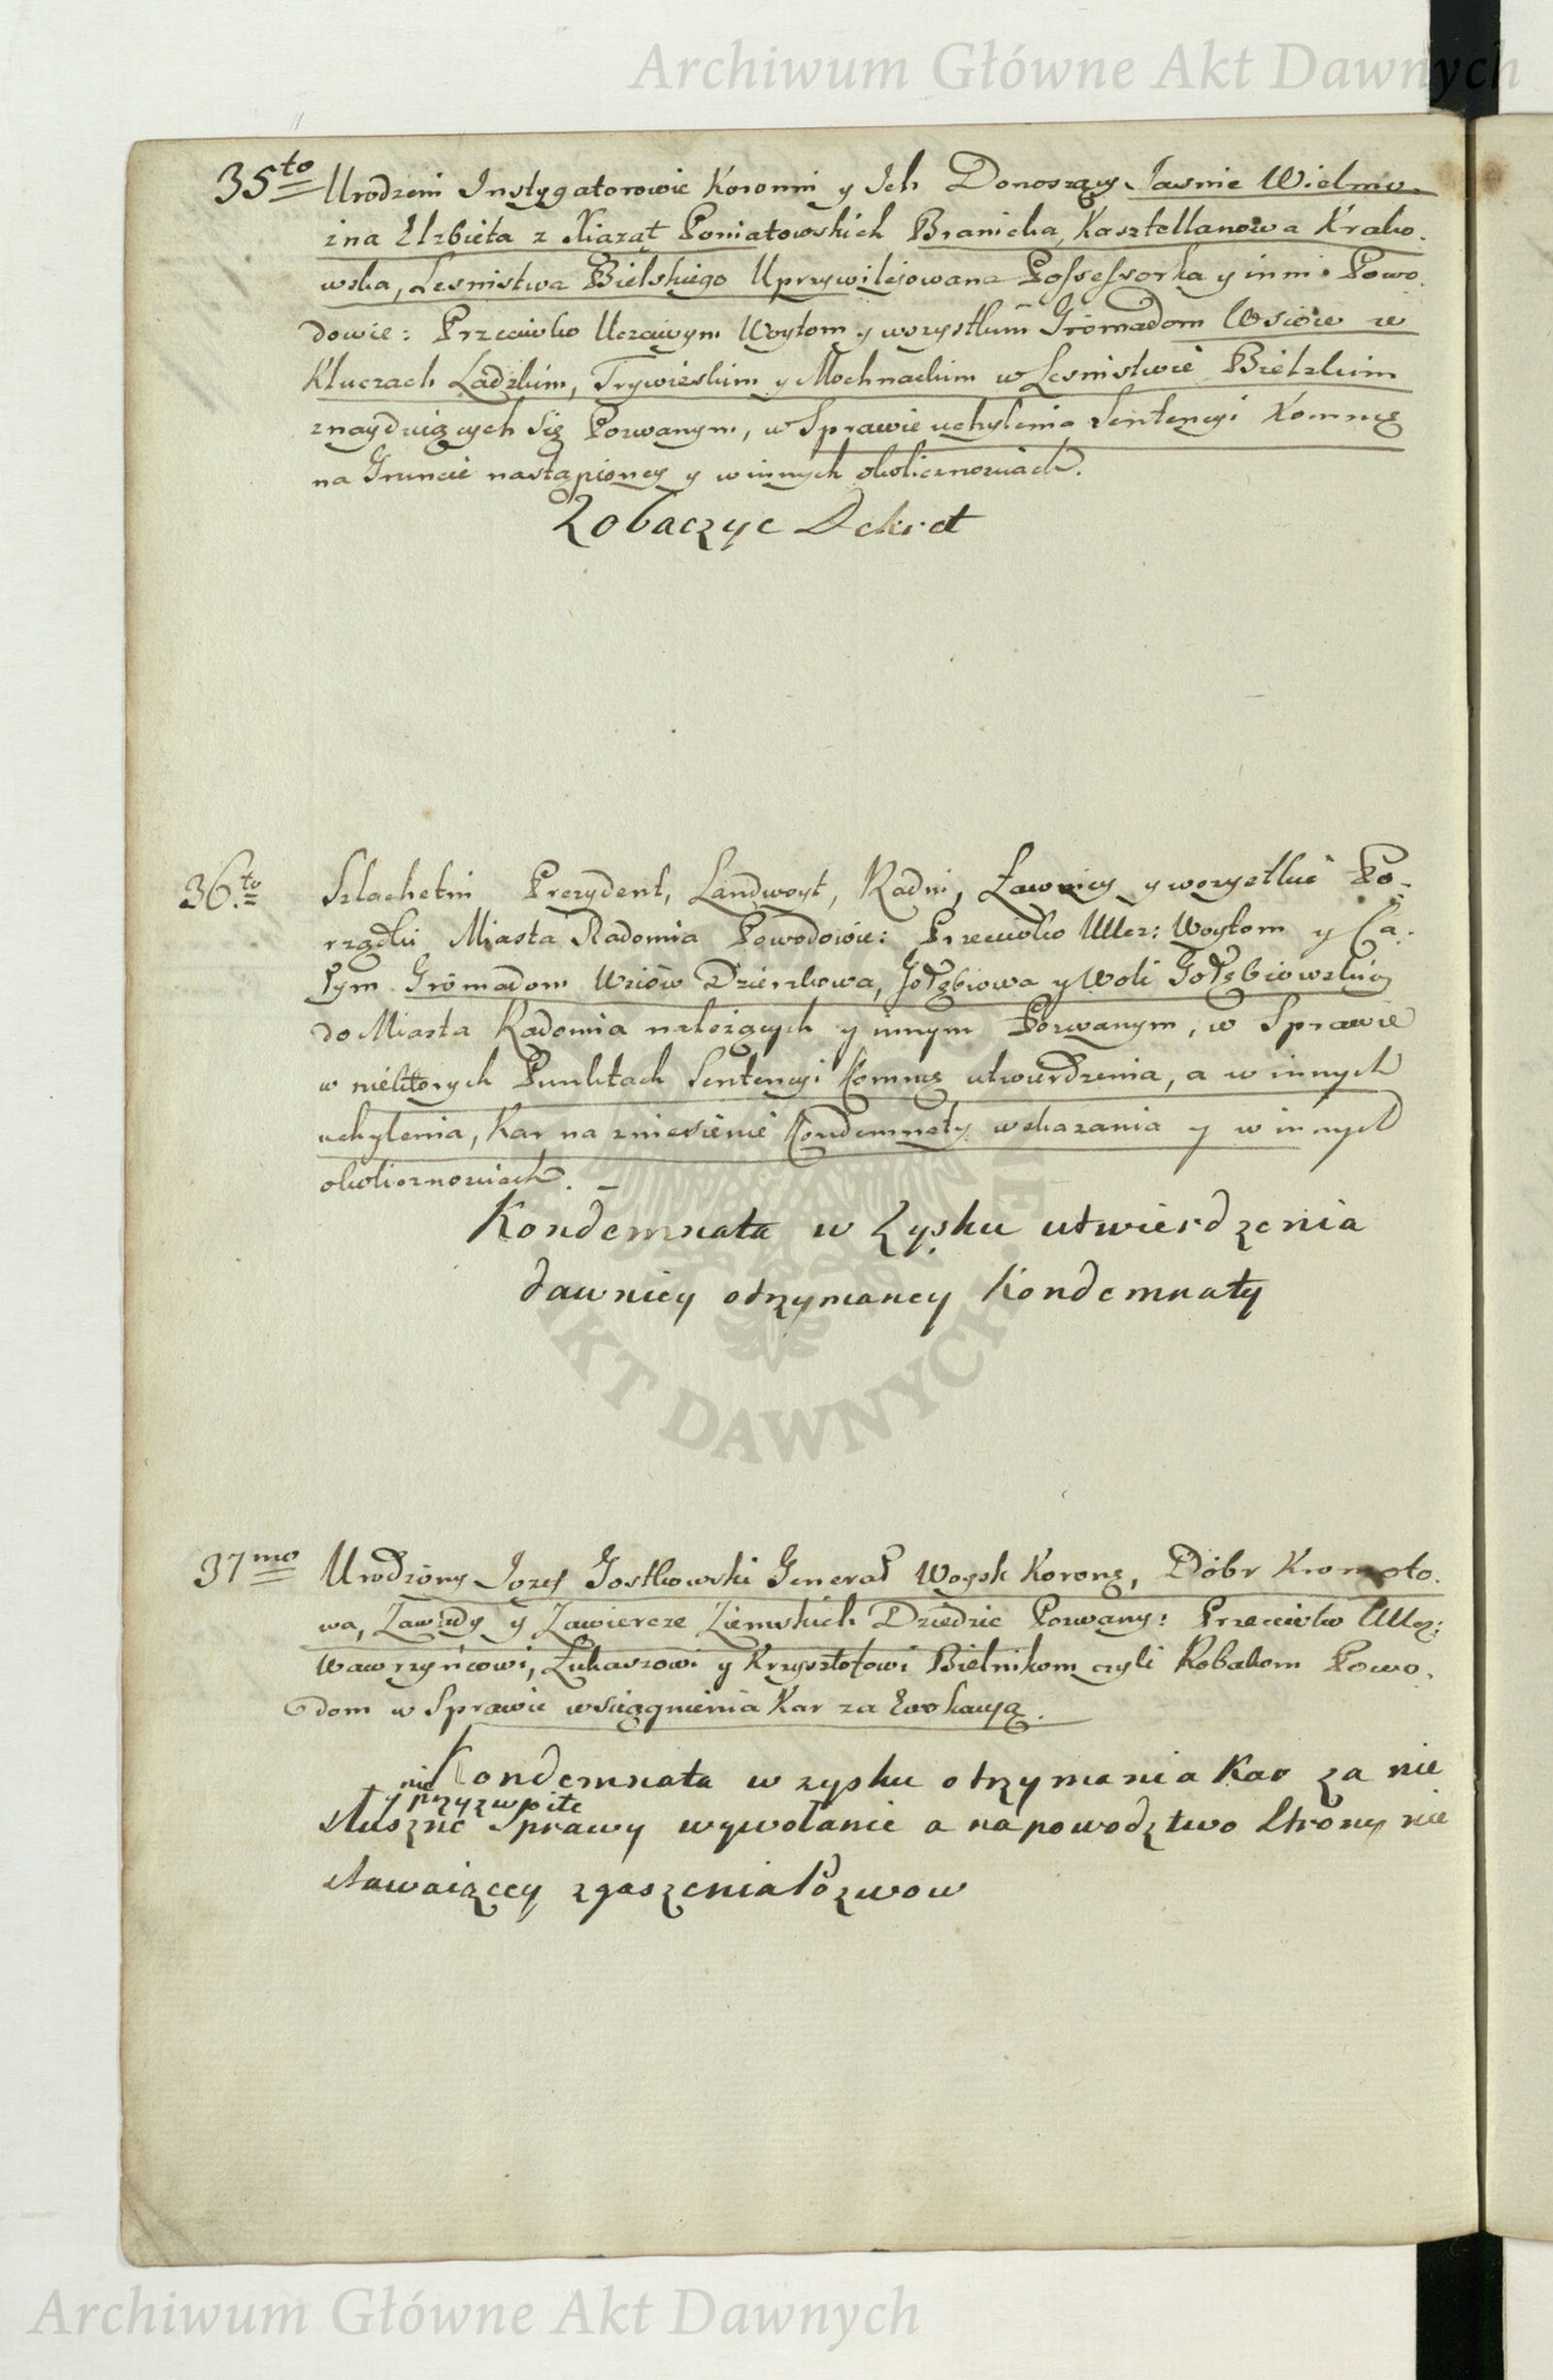 Archiwum Główne Akt Dawnych
35to Urodzeni Instygatorowie Koronni y Ich Donoszący Jasnie Wielmo-
zna Elzbieta z Xiaząt Poniatowskich Branicka, Kasztellanowa Krako-
wska, Lesnistwa Bielskiego Uprzywilejowana Possessorka y inni Powo-
dowie: Przeciwko Uczciwym Woytom y wszystkim Gromadom Wsiow w
Kluczach Ladzkim, Trywieskim y Mochnackim w Lesnistwie Bielskim
znayduiących się Pozwanym, w Sprawie uchylenia Sentencyi Kommis
na Gruncie nastąpioney y w innych okolicznosciach.
Zobaczyc Dekret
36.to Szlachetni Prezydent, Landwoyt, Radni, Ławnicy y wszystkie Po-
rządki Miasta Radomia Powodowie: Przeciwko Ucz: Woytom y Ca-
łym Gromadom Wsiów Dzierzkowa, Gołębiowa y Woli Gołębiowskiey
do Miasta Radomia należących y innym Pozwanym, w Sprawie
w niektorych Punktach Sentencyi Kommis utwierdzenia, a w innych
uchylenia, Kar na zniesienie Kondemnaty wskazania y w innych
okolicznosciach. –
Kondemnata w Zysku utwierdzenia
dawniey otrzymaney Kondemnaty
37mo Urodzony Jozef Gostkowski Generał Woysk Koronę, Dóbr Kromoło-
wa, Zawady y Zawiercze Ziemskich Dziedzic Pozwany: Przeciwko Ucz:
Wawrzyńcowi, Łukaszowi y Krzysztofowi Bielnikom czyli Robakom Powo-
dom w Sprawie wsciągnienia Kar za Ewokacyą.
Kondemnata w zysku otrzymania Kar za nie
y nie przyzwoite
słuszne Sprawy wywołanie a na powodztwo Strony nie
stawaiącey zgaszenia Pozwow
AKT DAWNYCH
Archiwum Główne Akt Dawnych